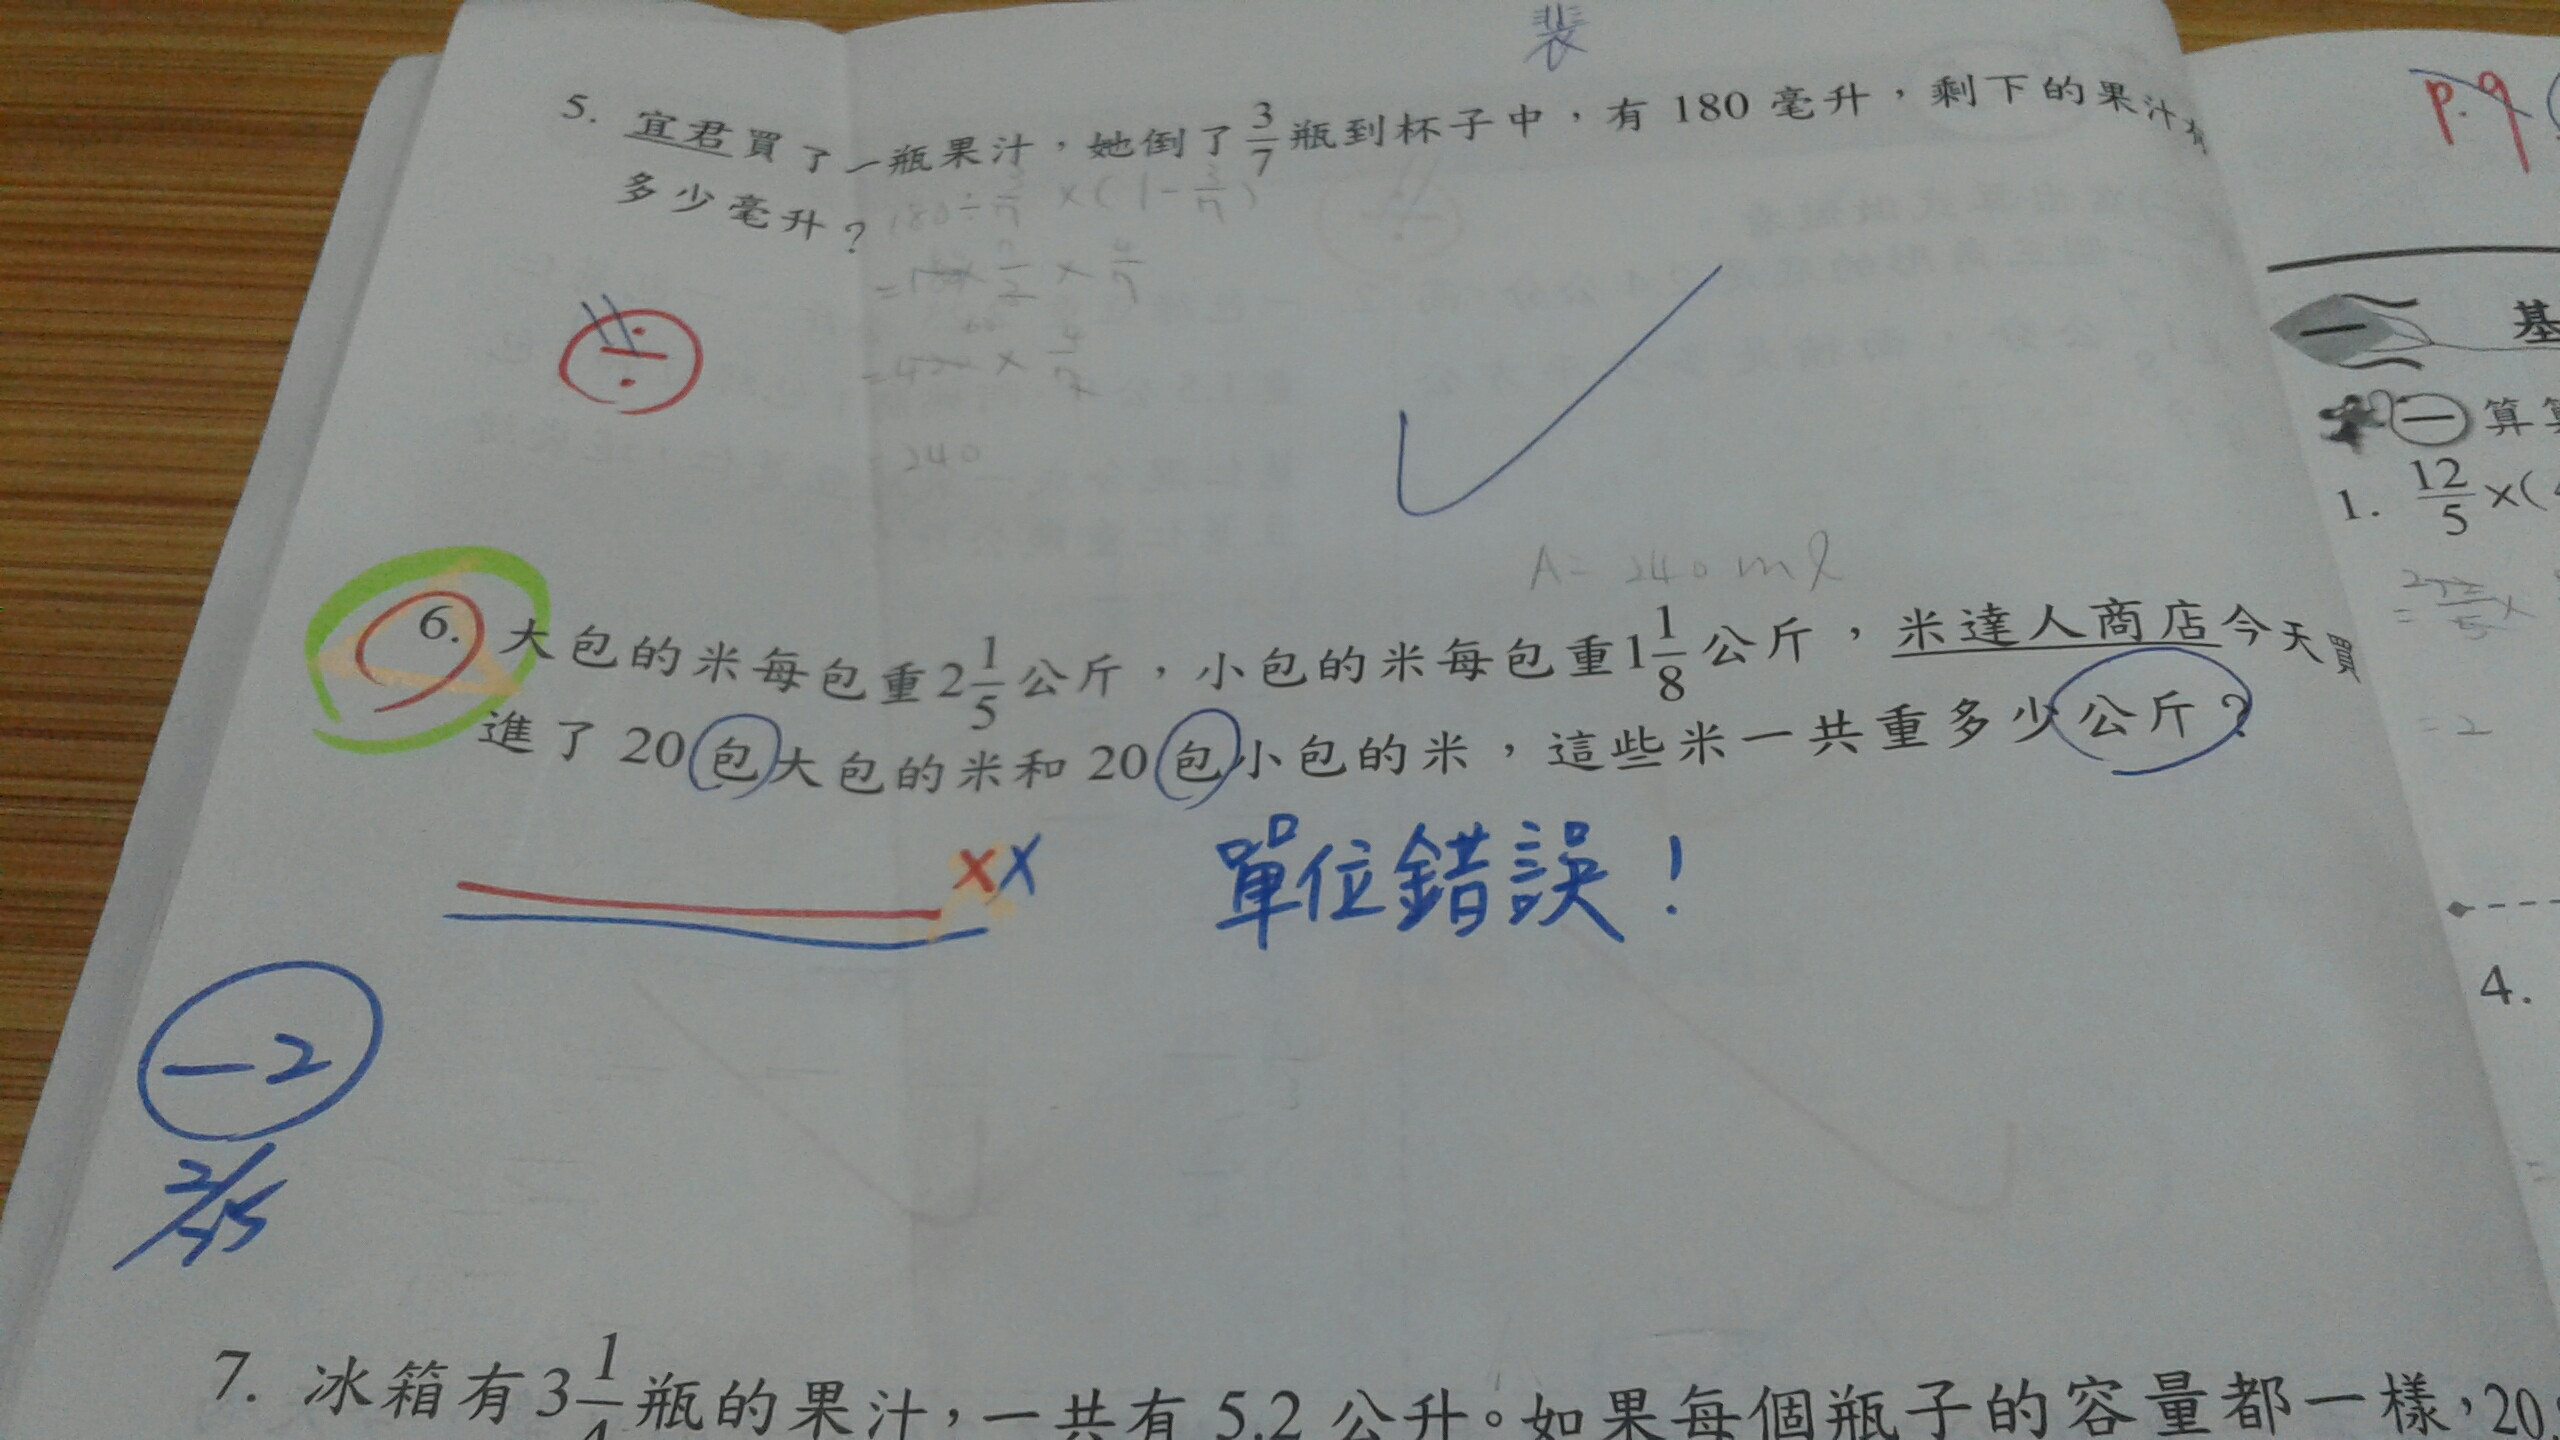 裴
5. 宜君買了一瓶果汁，她倒了3/7瓶到杯子中，有 180 毫升，剩下的果汁有
多少毫升？
180÷3/7×(1-3/7)
= 240
A= 240 ml
6. 大包的米每包重2 1/5公斤，小包的米每包重1 1/8公斤，米達人商店今天買
進了 20 包大包的米和 20 包小包的米，這些米一共重多少公斤？
××
單位錯誤！
-2
7. 冰箱有3 1/4瓶的果汁，一共有 5.2 公升。如果每個瓶子的容量都一樣，20
p.9
一 基
一 算算
1. 12/5×(
= 2
4.